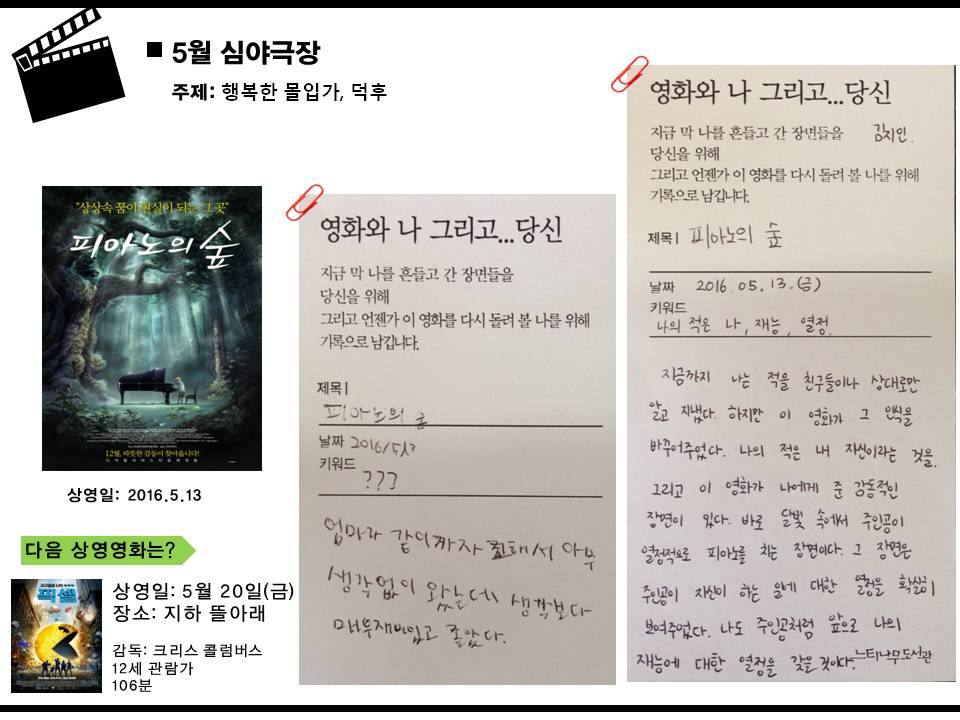 5월 심야극장
주제: 행복한 몰입가, 덕후
"상상속 꿈이 현실이 되는 그 곳"
피아노의 숲
12월, 따뜻한 감동이 찾아옵니다!
상영일: 2016.5.13
다음 상영영화는?
픽셀
상영일: 5월 20일(금)
장소: 지하 뜰아래
감독: 크리스 콜럼버스
12세 관람가
106분
영화와 나 그리고...당신
지금 막 나를 흔들고 간 장면들을
당신을 위해
그리고 언젠가 이 영화를 다시 돌려 볼 나를 위해
기록으로 남깁니다.
제목 |
피아노의 숲
날짜 2016/5/13
키워드
???
엄마가 같이 가자고 해서 아무
생각없이 왔는데 생각보다
매우 재미있고 좋았다.
영화와 나 그리고...당신
지금 막 나를 흔들고 간 장면들을 김치인.
당신을 위해
그리고 언젠가 이 영화를 다시 돌려 볼 나를 위해
기록으로 남깁니다.
제목 | 피아노의 숲
날짜 2016.05.13.(금)
키워드
나의 적은 나, 재능, 열정.
지금까지 나는 적을 친구들이나 상대로만
알고 지냈다. 하지만 이 영화가 그 인식을
바꾸어주었다. 나의 적은 내 자신이라는 것을.
그리고 이 영화가 나에게 준 감동적인
장면이 있다. 바로 달빛 속에서 주인공이
열정적으로 피아노를 치는 장면이다. 그 장면은
주인공이 자신이 하는 일에 대한 열정을 확실히
보여주었다. 나도 주인공처럼 앞으로 나의
재능에 대한 열정을 갖을 것이다.
느티나무도서관